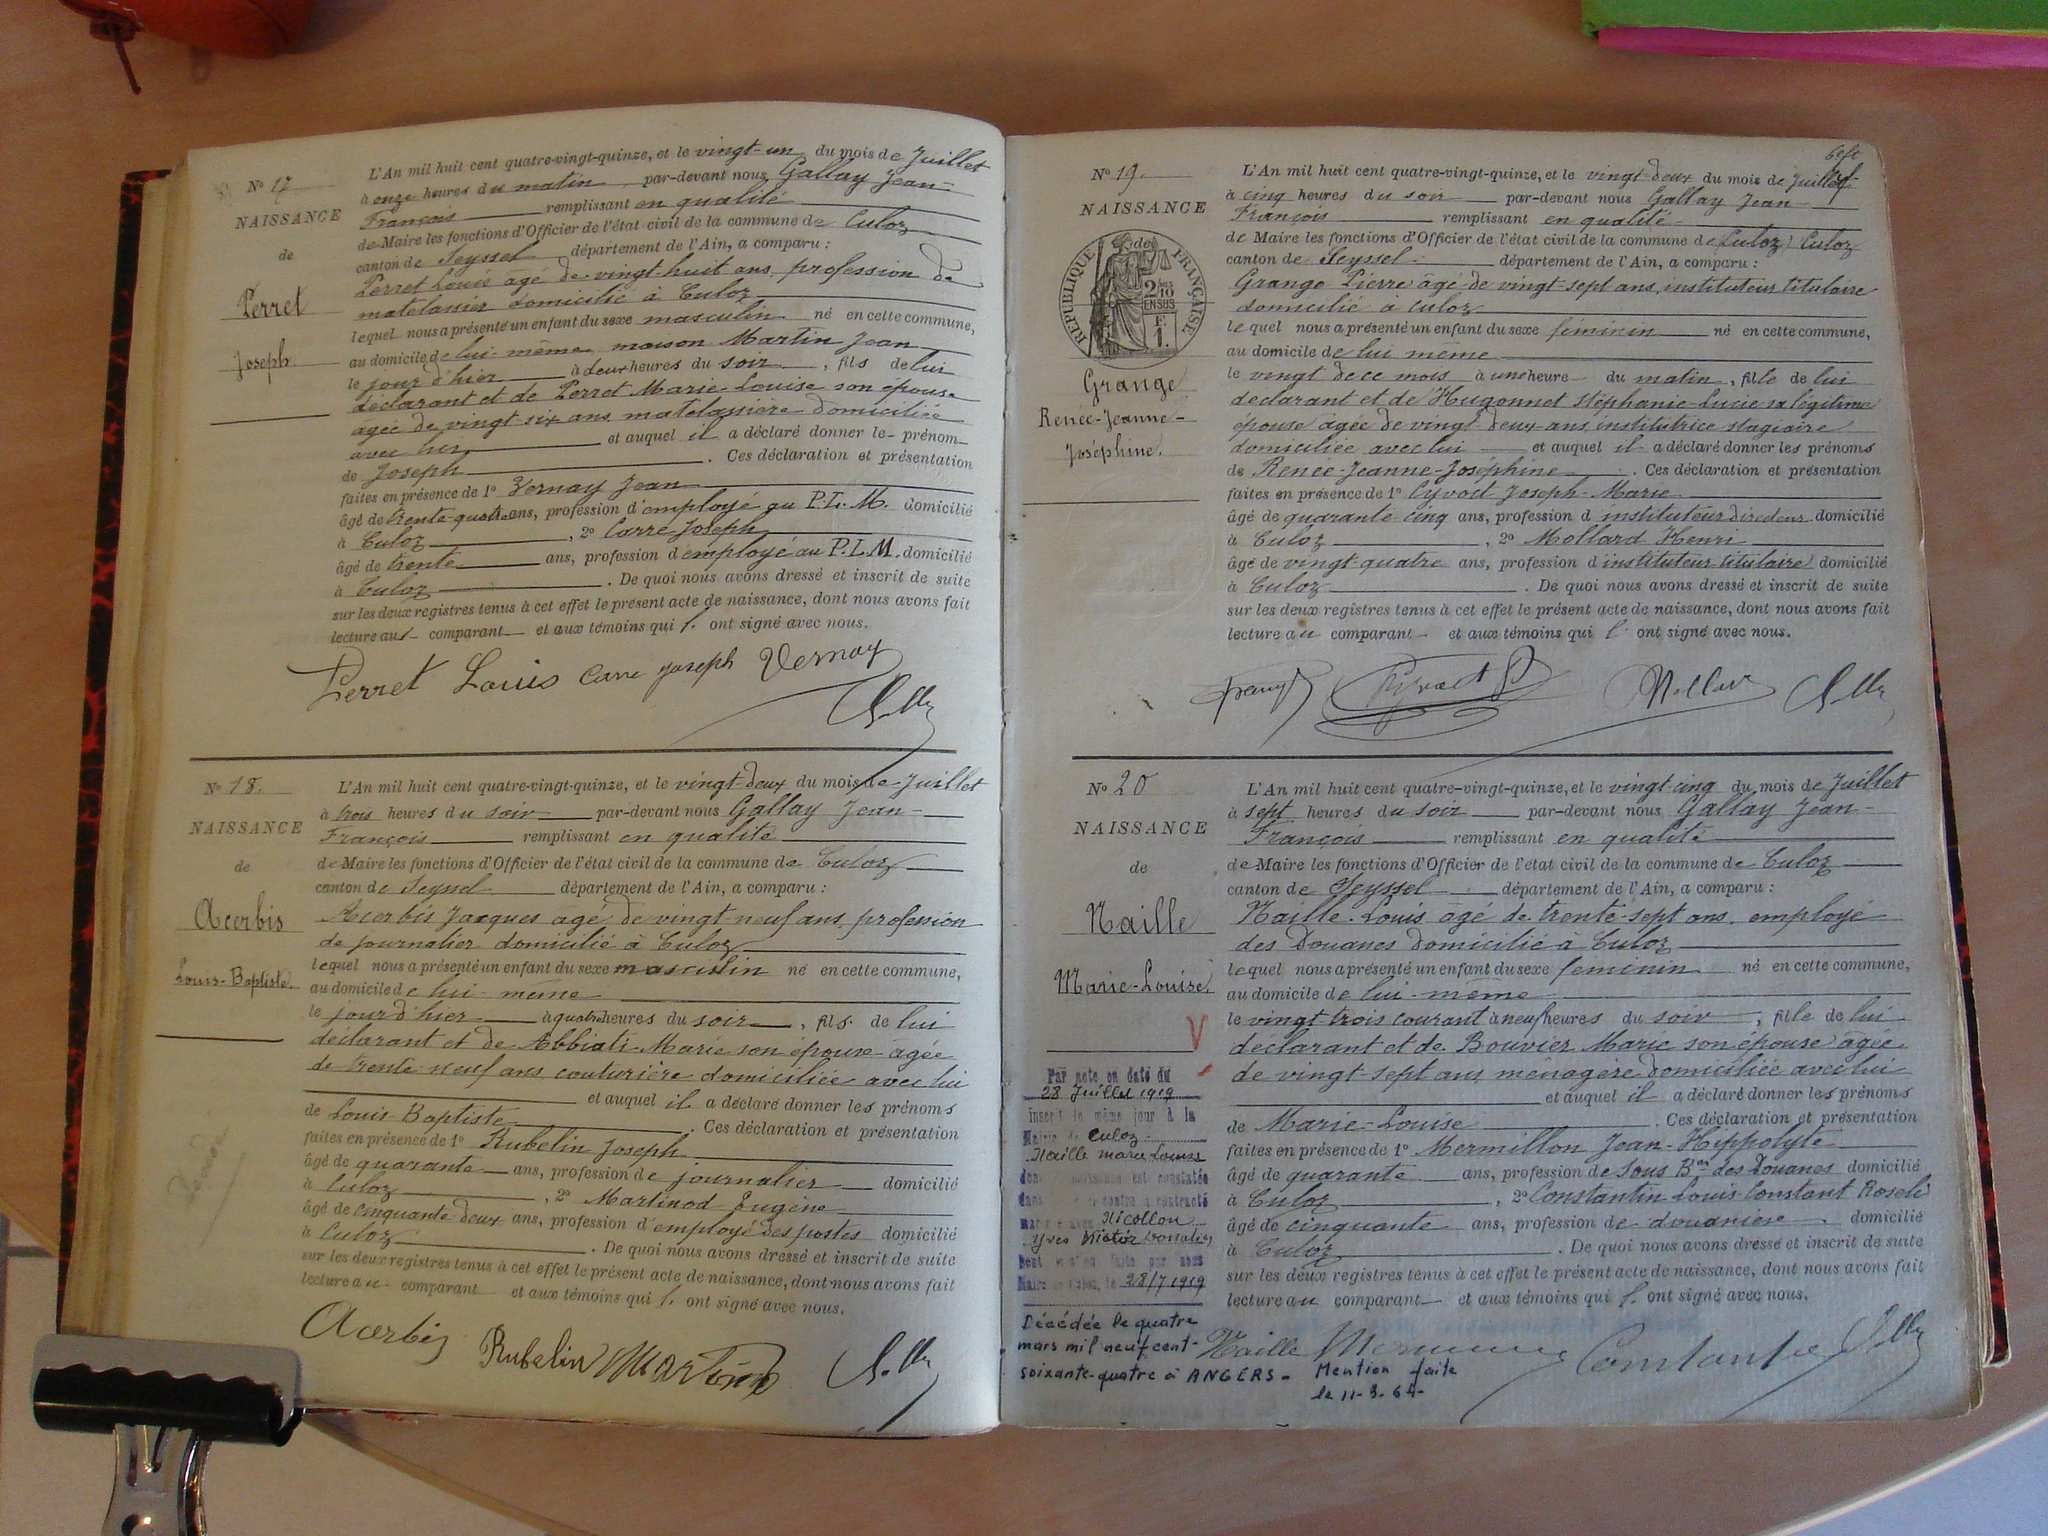 N° 17
NAISSANCE
de
Perret
Joseph
L'An mil huit cent quatre-vingt-quinze, et le vingt-un du mois de Juillet
à onze heures du matin par-devant nous Gallay Jean-
François remplissant en qualité
de Maire les fonctions d'Officier de l'état civil de la commune de Culoz
canton de Seyssel département de l'Ain, a comparu :
Perret Louis âgé de vingt-huit ans, profession de
matelassier domicilié à Culoz
lequel nous a présenté un enfant du sexe masculin né en cette commune,
au domicile de lui-même, maison Martin Jean
le jour d'hier à deux heures du soir, fils de lui
déclarant et de Perret Marie-Louise son épouse
âgée de vingt-six ans, matelassière domiciliée
avec lui et auquel il a déclaré donner le prénom
de Joseph. Ces déclaration et présentation
faites en présence de 1° Vernay Jean
âgé de trente-quatre ans, profession d'employé au P.L.M. domicilié
à Culoz, 2° Carre Joseph
âgé de trente ans, profession d'employé au P.L.M. domicilié
à Culoz. De quoi nous avons dressé et inscrit de suite
sur les deux registres tenus à cet effet le présent acte de naissance, dont nous avons fait
lecture au comparant et aux témoins qui l' ont signé avec nous.
Perret Louis Carre Joseph Vernay
N° 18.
NAISSANCE
de
Acerbis
Louis-Baptiste
L'An mil huit cent quatre-vingt-quinze, et le vingt-deux du mois de Juillet
à trois heures du soir par-devant nous Gallay Jean-
François remplissant en qualité
de Maire les fonctions d'Officier de l'état civil de la commune de Culoz
canton de Seyssel département de l'Ain, a comparu :
Acerbis Jacques âgé de vingt-neuf ans, profession
de journalier domicilié à Culoz
lequel nous a présenté un enfant du sexe masculin né en cette commune,
au domicile de lui-même
le jour d'hier à quatre heures du soir, fils de lui
déclarant et de Abbiati Marie son épouse âgée
de trente-neuf ans couturière domiciliée avec lui
et auquel il a déclaré donner les prénoms
de Louis-Baptiste. Ces déclaration et présentation
faites en présence de 1° Rubelin Joseph
âgé de quarante ans, profession de journalier domicilié
à Culoz, 2° Martinod Eugène
âgé de cinquante-deux ans, profession d'employé des postes domicilié
à Culoz. De quoi nous avons dressé et inscrit de suite
sur les deux registres tenus à cet effet le présent acte de naissance, dont nous avons fait
lecture au comparant et aux témoins qui l' ont signé avec nous.
Acerbis Rubelin Martinod
N° 19.
NAISSANCE
de
RÉPUBLIQUE FRANÇAISE
2/10 EN SUS
F. 1.
Grange
Renée-Jeanne-
Joséphine.
L'An mil huit cent quatre-vingt-quinze, et le vingt-deux du mois de Juillet
à cinq heures du soir par-devant nous Gallay Jean-
François remplissant en qualité
de Maire les fonctions d'Officier de l'état civil de la commune de Culoz Culoz
canton de Seyssel département de l'Ain, a comparu :
Grange Pierre âgé de vingt-sept ans, instituteur titulaire
domicilié à Culoz
lequel nous a présenté un enfant du sexe féminin né en cette commune,
au domicile de lui même
le vingt de ce mois à une heure du matin, fille de lui
déclarant et de Hugonnet Stéphanie-Lucie sa légitime
épouse âgée de vingt-deux ans, institutrice stagiaire
domiciliée avec lui et auquel il a déclaré donner les prénoms
de Renée-Jeanne-Joséphine. Ces déclaration et présentation
faites en présence de 1° Cyvoct Joseph-Marie
âgé de quarante-cinq ans, profession d'instituteur directeur domicilié
à Culoz, 2° Mollard Henri
âgé de vingt-quatre ans, profession d'instituteur titulaire domicilié
à Culoz. De quoi nous avons dressé et inscrit de suite
sur les deux registres tenus à cet effet le présent acte de naissance, dont nous avons fait
lecture au comparant et aux témoins qui l' ont signé avec nous.
N° 20
NAISSANCE
de
Naille
Marie-Louise
L'An mil huit cent quatre-vingt-quinze, et le vingt-cinq du mois de Juillet
à sept heures du soir par-devant nous Gallay Jean-
François remplissant en qualité
de Maire les fonctions d'Officier de l'état civil de la commune de Culoz
canton de Seyssel département de l'Ain, a comparu :
Naille Louis âgé de trente-sept ans, employé
des Douanes domicilié à Culoz
lequel nous a présenté un enfant du sexe féminin né en cette commune,
au domicile de lui-même
le vingt-trois courant à neuf heures du soir, fille de lui
déclarant et de Bouvier Marie son épouse âgée
de vingt-sept ans, ménagère domiciliée avec lui
et auquel il a déclaré donner les prénoms
de Marie-Louise. Ces déclaration et présentation
faites en présence de 1° Mermillon Jean-Hippolyte
âgé de quarante ans, profession de sous Ber des Douanes domicilié
à Culoz, 2° Constantin Louis Constant
âgé de cinquante ans, profession de douanière domicilié
à Culoz. De quoi nous avons dressé et inscrit de suite
sur les deux registres tenus à cet effet le présent acte de naissance, dont nous avons fait
lecture au comparant et aux témoins qui l' ont signé avec nous.
Par acte en date du
28 Juillet 1919
inscrit le même jour à la
Mairie de Culoz
Naille Marie Louise
dont la naissance est constatée
dans l'acte ci-contre a contracté
mariage avec Nicollon
Yves Victor
Maire de Culoz, le 28/7 1919
Décédée le quatre
mars mil neuf cent-
soixante-quatre à ANGERS-
Mention faite
le 11-3-64-
Naille